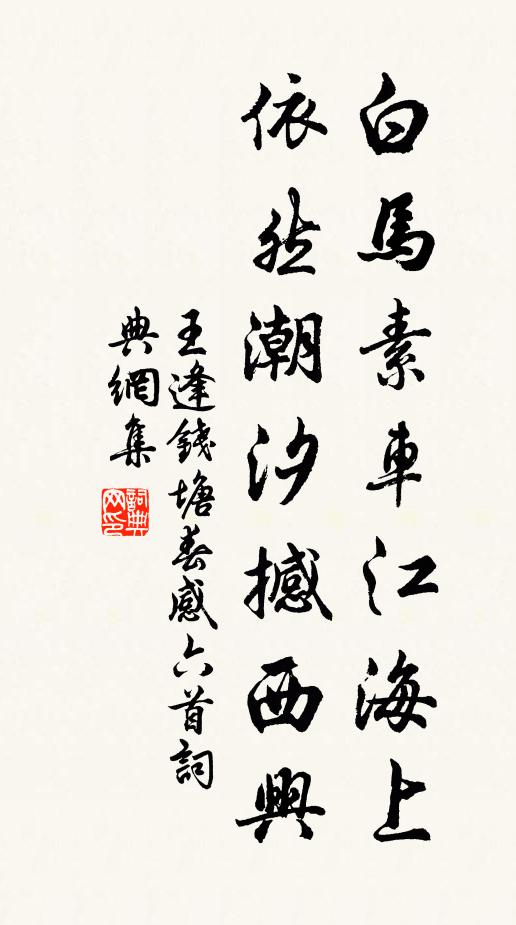 白馬素車江海上
依然潮汐撼西興
王逢錢塘春感六首詞
典網集
詞典网印